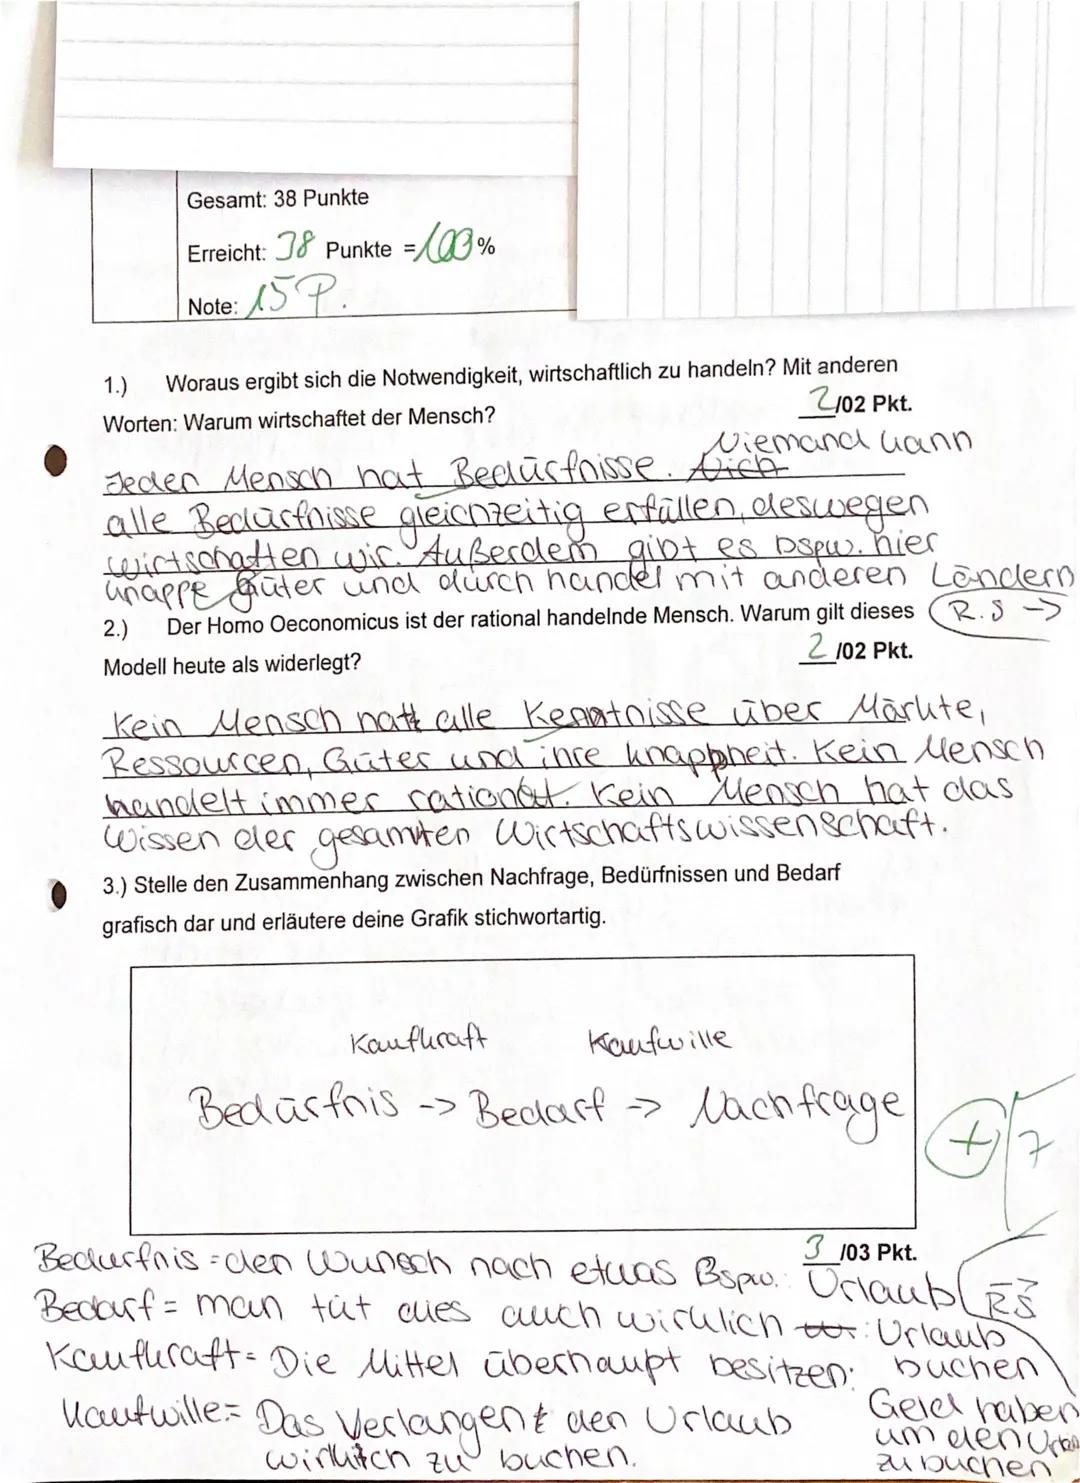 Gesamt: 38 Punkte
Erreicht: 38 Punkte = 100%
Note: 15 P.
1.) Woraus ergibt sich die Notwendigkeit, wirtschaftlich zu handeln? Mit anderen
Worten: Warum wirtschaftet der Mensch? 2/02 Pkt.
Jeder Mensch hat Bedürfnisse. Niemand kann
alle Bedürfnisse gleichzeitig erfüllen, deswegen
wirtschaften wir. Außerdem gibt es bspw. hier
knappe Güter und durch handel mit anderen Ländern
2.) Der Homo Oeconomicus ist der rational handelnde Mensch. Warum gilt dieses R.S →
Modell heute als widerlegt? 2/02 Pkt.
Kein Mensch hat alle Kenntnisse über Märkte,
Ressourcen, Güter und ihre knappheit. Kein Mensch
handelt immer rational. Kein Mensch hat das
Wissen der gesamten Wirtschaftswissenschaft.
3.) Stelle den Zusammenhang zwischen Nachfrage, Bedürfnissen und Bedarf
grafisch dar und erläutere deine Grafik stichwortartig.
Kaufkraft Kaufwille
Bedürfnis -> Bedarf -> Nachfrage
+ 7
3/03 Pkt.
Bedürfnis = den Wunsch nach etwas Bspw.: Urlaub RS
Bedarf = man tut dies auch wirklich : Urlaub
buchen
Kaufkraft = Die Mittel überhaupt besitzen:
Geld haben
um den Urlaub
zu buchen
Kaufwille = Das Verlangen den Urlaub
wirklich zu buchen.